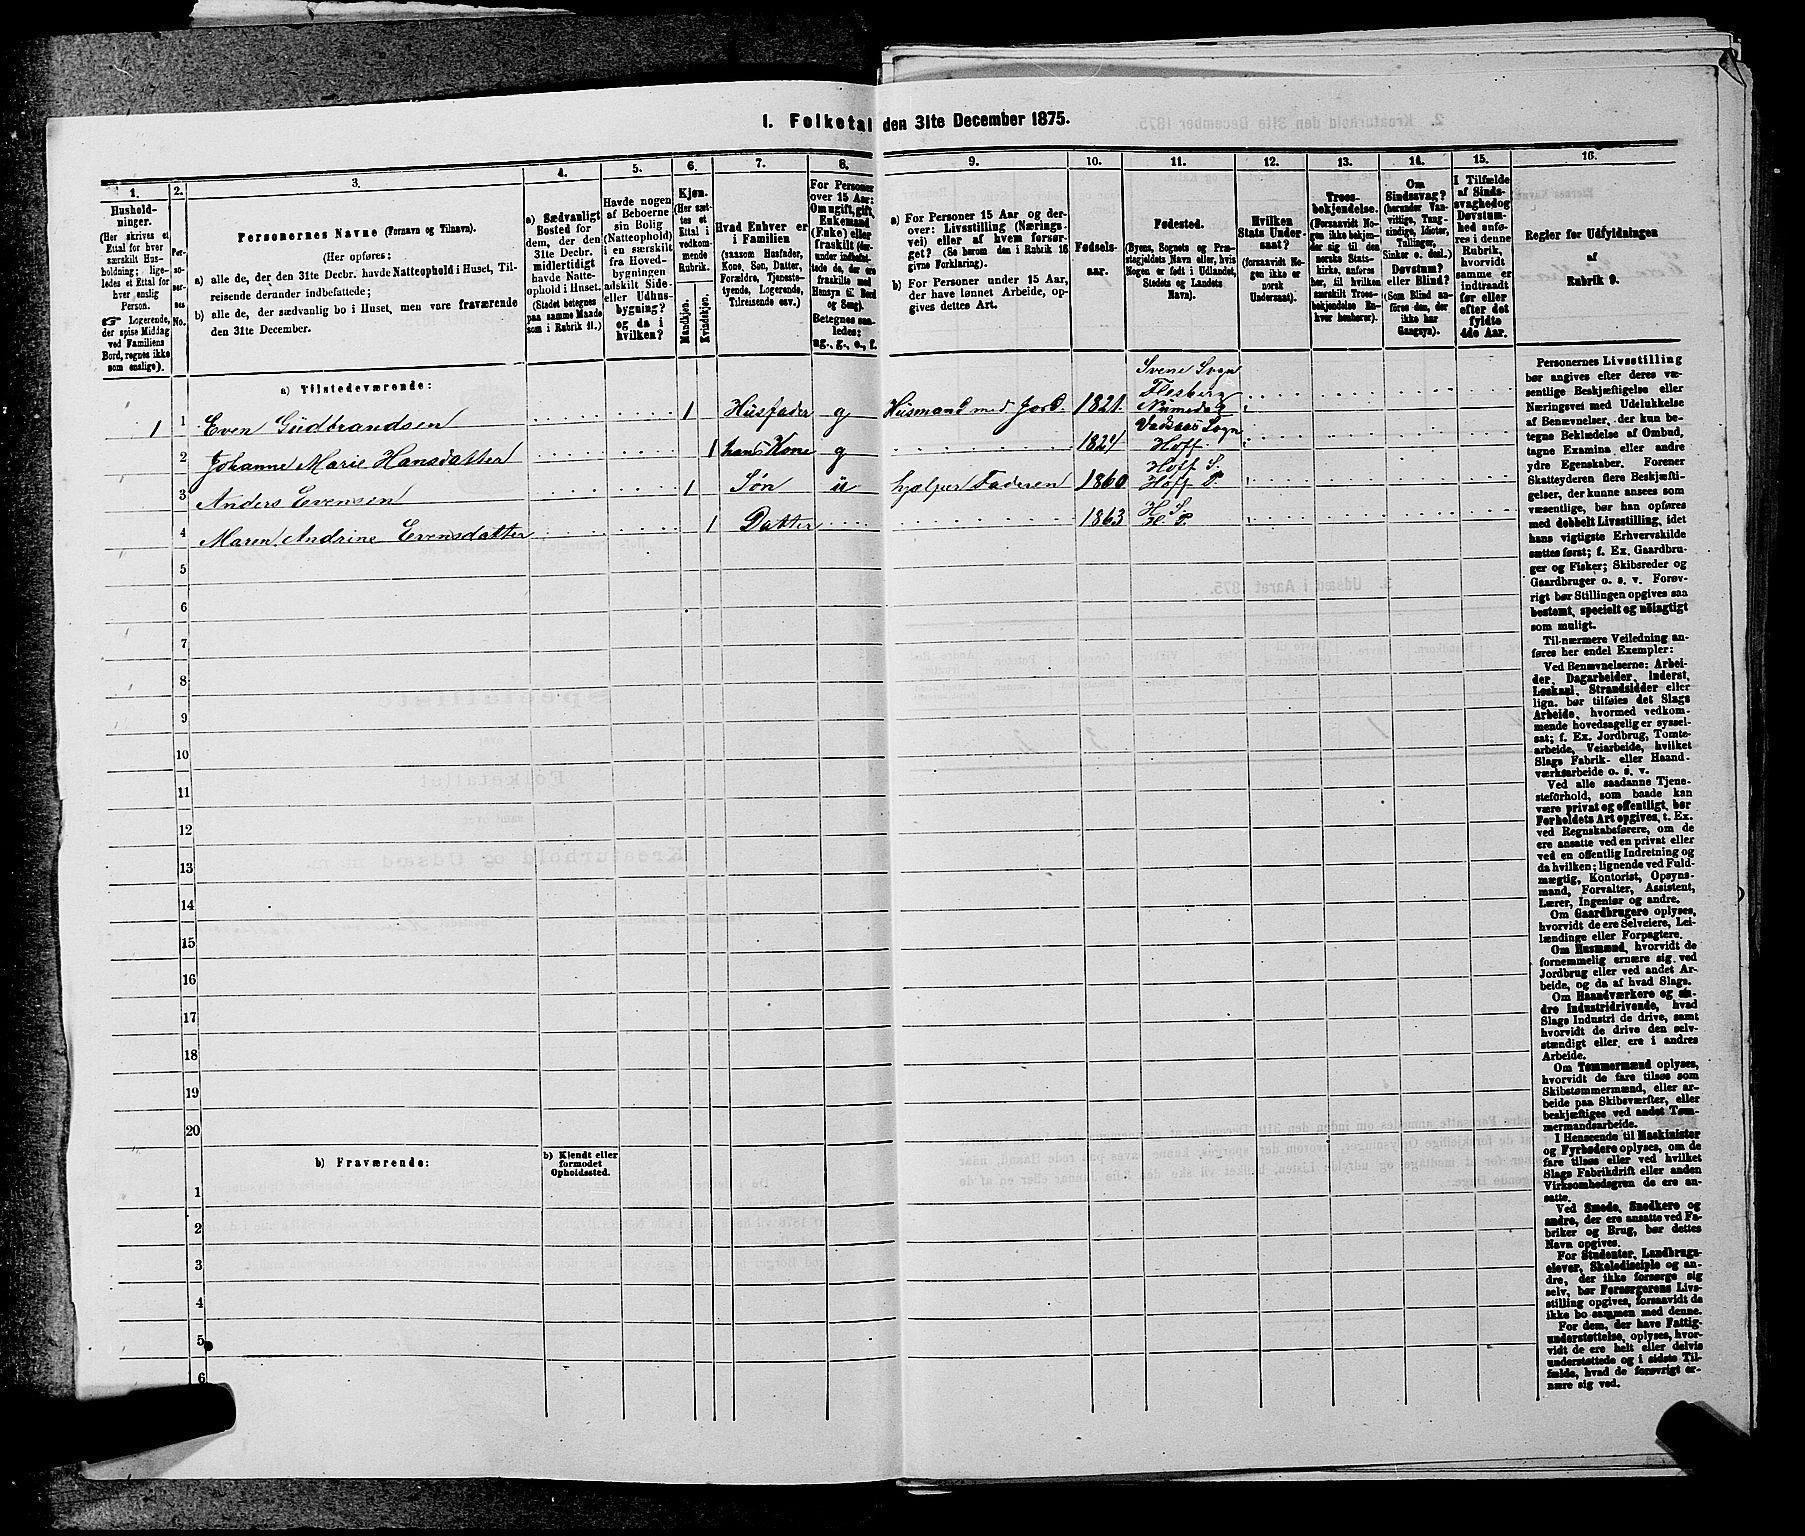 1. Folketal den 31te December 1875.
1.
2.
3.
4.
5.
6.
7.
8.
9.
10.
11.
12.
13.
14.
15.
16.
Hushold-
ninger.
(Her skrives et
Ettal for hver
særskilt Hus-
holdning; lige-
ledes et Ettal for
hver enslig
Person.
Logerende,
der spise Middag
ved Familiens
Bord, regnes ikke
som enslige).
Per-
so-
ner-
nes
No.
Personernes Navne (Fornavn og Tilnavn).
(Her opføres:
a) alle de, der den 31te Decbr. havde Natteophold i Huset, Til-
reisende derunder indbefattede;
b) alle de, der sædvanlig bo i Huset, men vare fraværende
den 31te December.
a) Sædvanligt
Bosted for
dem, der den
31te Decbr.
midlertidigt
havde Natte-
ophold i Huset.
(Stedet betegnes
paa samme Maade
som i Rubrik 11.)
Havde nogen
af Beboerne
sin Bolig
(Natteophold)
i en særskilt
fra Hoved-
bygningen
adskilt Side-
eller Udhus-
bygning?
og da i
hvilken?
Kjøn.
(Her sæt-
tes et
Ettal i
vedkom-
mende
Rubrik.
Mandkjøn.
Kvindekjøn.
Hvad Enhver er
i Familien
(saasom Husfader,
Kone, Søn, Datter,
Forældre, Tjeneste-
tyende, Logerende,
Tilreisende osv.)
For Personer
over 15 Aar:
Om ugift, gift,
Enkemand
(Enke) eller
fraskilt (der-
under indbefat-
tede de, der ere
fraskilte med
Hensyn til Bord
og Seng).
Betegnes saa-
ledes:
ug., g., e., f.
a) For Personer 15 Aar og der-
over: Livsstilling (Nærings-
vei) eller af hvem forsør-
get? (Se herom den i Rubrik 16
givne Forklaring).
b) For Personer under 15 Aar,
der have lønnet Arbeide, op-
gives dettes Art.
Fødsels-
aar.
Fødested.
(Byens, Sognets og Præ-
stegjeldets Navn eller, hvis
Nogen er født i Udlandet,
Stedets og Landets
Navn).
Hvilken
Stats Under-
saat?
(forsaavidt No-
gen ikke er
norsk
Undersaat).
Troes-
bekjendelse.
(Forsaavidt No-
gen ikke bekjen-
der sig til den
norske Stats-
kirke, anføres
her, til hvilken
særskilt Troes-
bekjendelse En-
hver henhører).
Om
Sindssvag?
(herunder Van-
vittige, Tung-
sindige, Idioter,
Tullinger,
Sinker o. desl.)
Døvstum?
eller Blind?
(Som Blind an-
føres den, der
ikke har
Gangsyn).
I Tilfælde
af Sinds-
svaghed og
Døvstum-
hed anfø-
res i denne
Rubrik,
hvorvidt
samme er
indtraadt
før eller
efter det
fyldte
4de Aar.
Regler for Udfyldningen
af
Rubrik 9.
a) Tilstedeværende:
1 1 Even Gudbrandsen 1 Husfader g Husmand med Jord. 1821. Svene Sogn
Flesberg
Numedal
2 Johanne Marie Hansdatter 1 hans Kone g 1824 Vadsaas Sogn
Hoff
3 Anders Evensen 1 Søn u hjelper Faderen 1860 Hoff S.
Hoff P.
4 Maren Andrine Evensdatter 1 Datter 1863 H. S.
H. P.
5
6
7
8
9
10
11
12
13
14
15
16
17
18
19
20
b) Fraværende:
b) Kjendt eller
formodet
Opholdssted.
1
2
3
4
5
6
Personernes Livsstilling
bør angives efter deres væ-
sentlige Beskjæftigelse eller
Næringsvei med Udelukkelse
af Benævnelser, der kun be-
tegne Beklædelse af Ombud,
tagne Examina eller andre
ydre Egenskaber. Forener
Skatteyderen flere Beskjæfti-
gelser, der kunne ansees som
væsentlige, bør han opføres
med dobbelt Livsstilling, idet
hans vigtigste Erhvervskilde
sættes først; f. Ex. Gaardbru-
ger og Fisker; Skibsreder og
Gaardbruger o. s. v. Forøv-
rigt bør Stillingen opgives saa
bestemt, specielt og nøiagtigt
som muligt.
Til nærmere Veiledning an-
føres her endel Exempler:
Ved Benævnelserne: Arbei-
der, Dagarbeider, Inderst,
Løskarl, Strandsidder eller
lign. bør tilføies det Slags
Arbeide, hvormed vedkom-
mende hovedsagelig er syssel-
sat; f. Ex. Jordbrug, Tomte-
arbeide, Veiarbeide, hvilket
Slags Fabrik- eller Haand-
værksarbeide o. s. v.
Ved alle saadanne Tjene-
steforhold, som baade kan
være privat og offentligt, bør
Forholdets Art opgives, t. Ex.
ved Regnskabsførere, om de
ere ansatte ved en privat eller
ved en offentlig Indretning og
da hvilken; lignende ved Fuld-
mægtig, Kontorist, Opsyns-
mand, Forvalter, Assistent,
Lærer, Ingeniør og andre.
Om Gaardbrugere oplyses,
hvorvidt de ere Selveiere, Lei-
lændinge eller Forpagtere.
Om Husmænd, hvorvidt de
fornemmelig ernære sig ved
Jordbrug eller ved andet Ar-
beide, og da af hvad Slags.
Om Haandværkere og an-
dre Industridrivende, hvad
Slags Industri de drive, samt
hvorvidt de drive den selv-
stændigt eller ere i andres
Arbeide.
Om Tømmermænd oplyses,
hvorvidt de fare tilsøs som
Skibstømmermænd, eller ar-
beide paa Skibsværfter, eller
beskjæftiges ved andet Tøm-
mermandsarbeide.
I Henseende til Maskinister
og Fyrbødere oplyses, om de
fare tilsøs eller ved hvilket
Slags Fabrikdrift eller anden
Virksomhedsgren de ere an-
satte.
Ved Smede, Snedkere og
andre, der ere ansatte ved Fa-
briker og Brug, bør dettes
Navn opgives.
For Studenter, Landbrugs-
elever, Skoledisciple og an-
dre, der ikke forsørge sig
selv, bør Forsørgerens Livs-
stilling opgives, forsaavidt de
ikke bo sammen med denne.
For dem, der have Fattig-
understøttelse, oplyses, hvor-
vidt de ere helt eller delvis
understøttede og i sidste Til-
fælde, hvad de forøvrigt er-
nære sig ved.